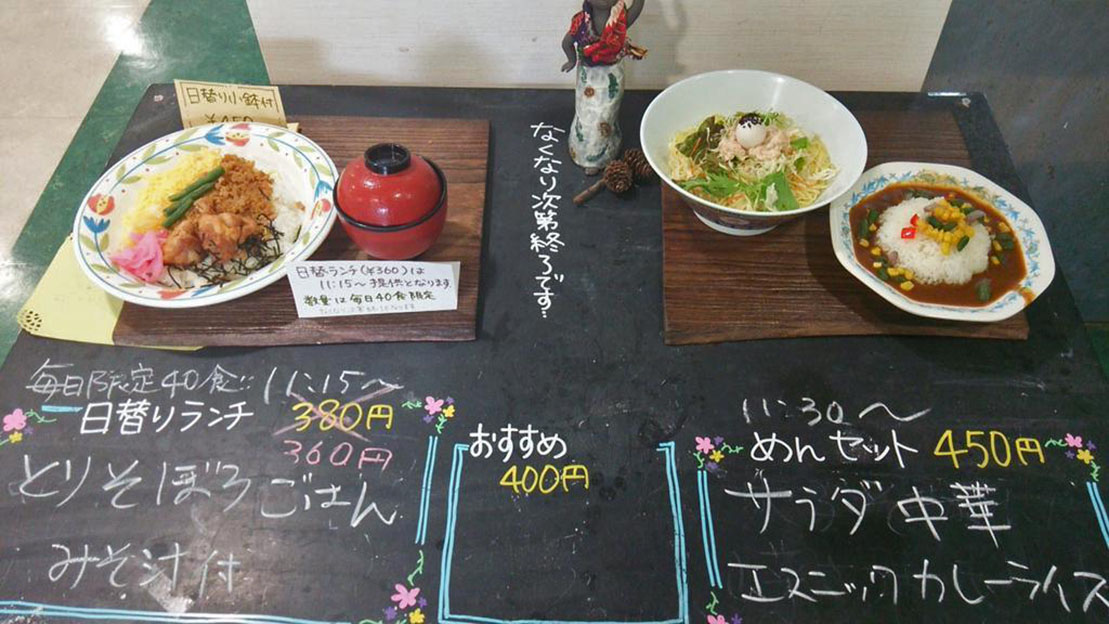 日替り小鉢付
¥450
なくなり次第終了です.
日替ランチ(¥360)は
11:15〜提供となります
数量は毎日40食限定
毎日限定40食!! 11:15〜
日替りランチ 380円
360円
とりそぼろごはん
みそ汁付
おすすめ
400円
11:30〜
めんセット 450円
サラダ中華
エスニックカレーライス